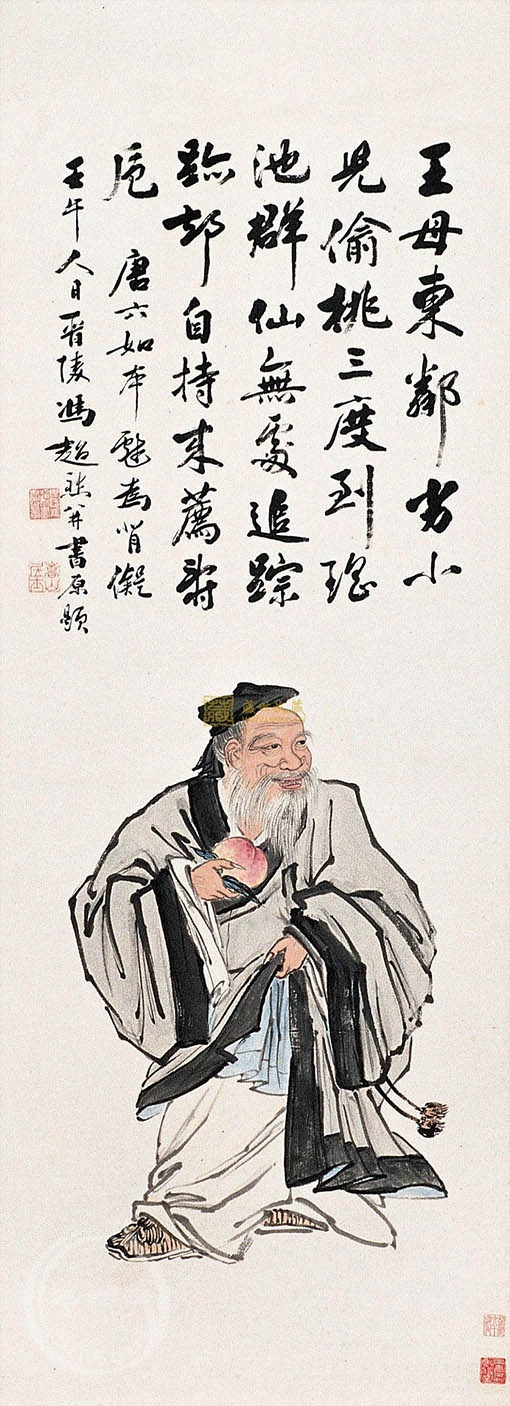 王母東鄰劣小
兒偷桃三度到瑤
池群仙無處追踪
跡却自持來薦壽
卮 唐六如本 為背儗
壬午人日晉陵馮超然并書原題